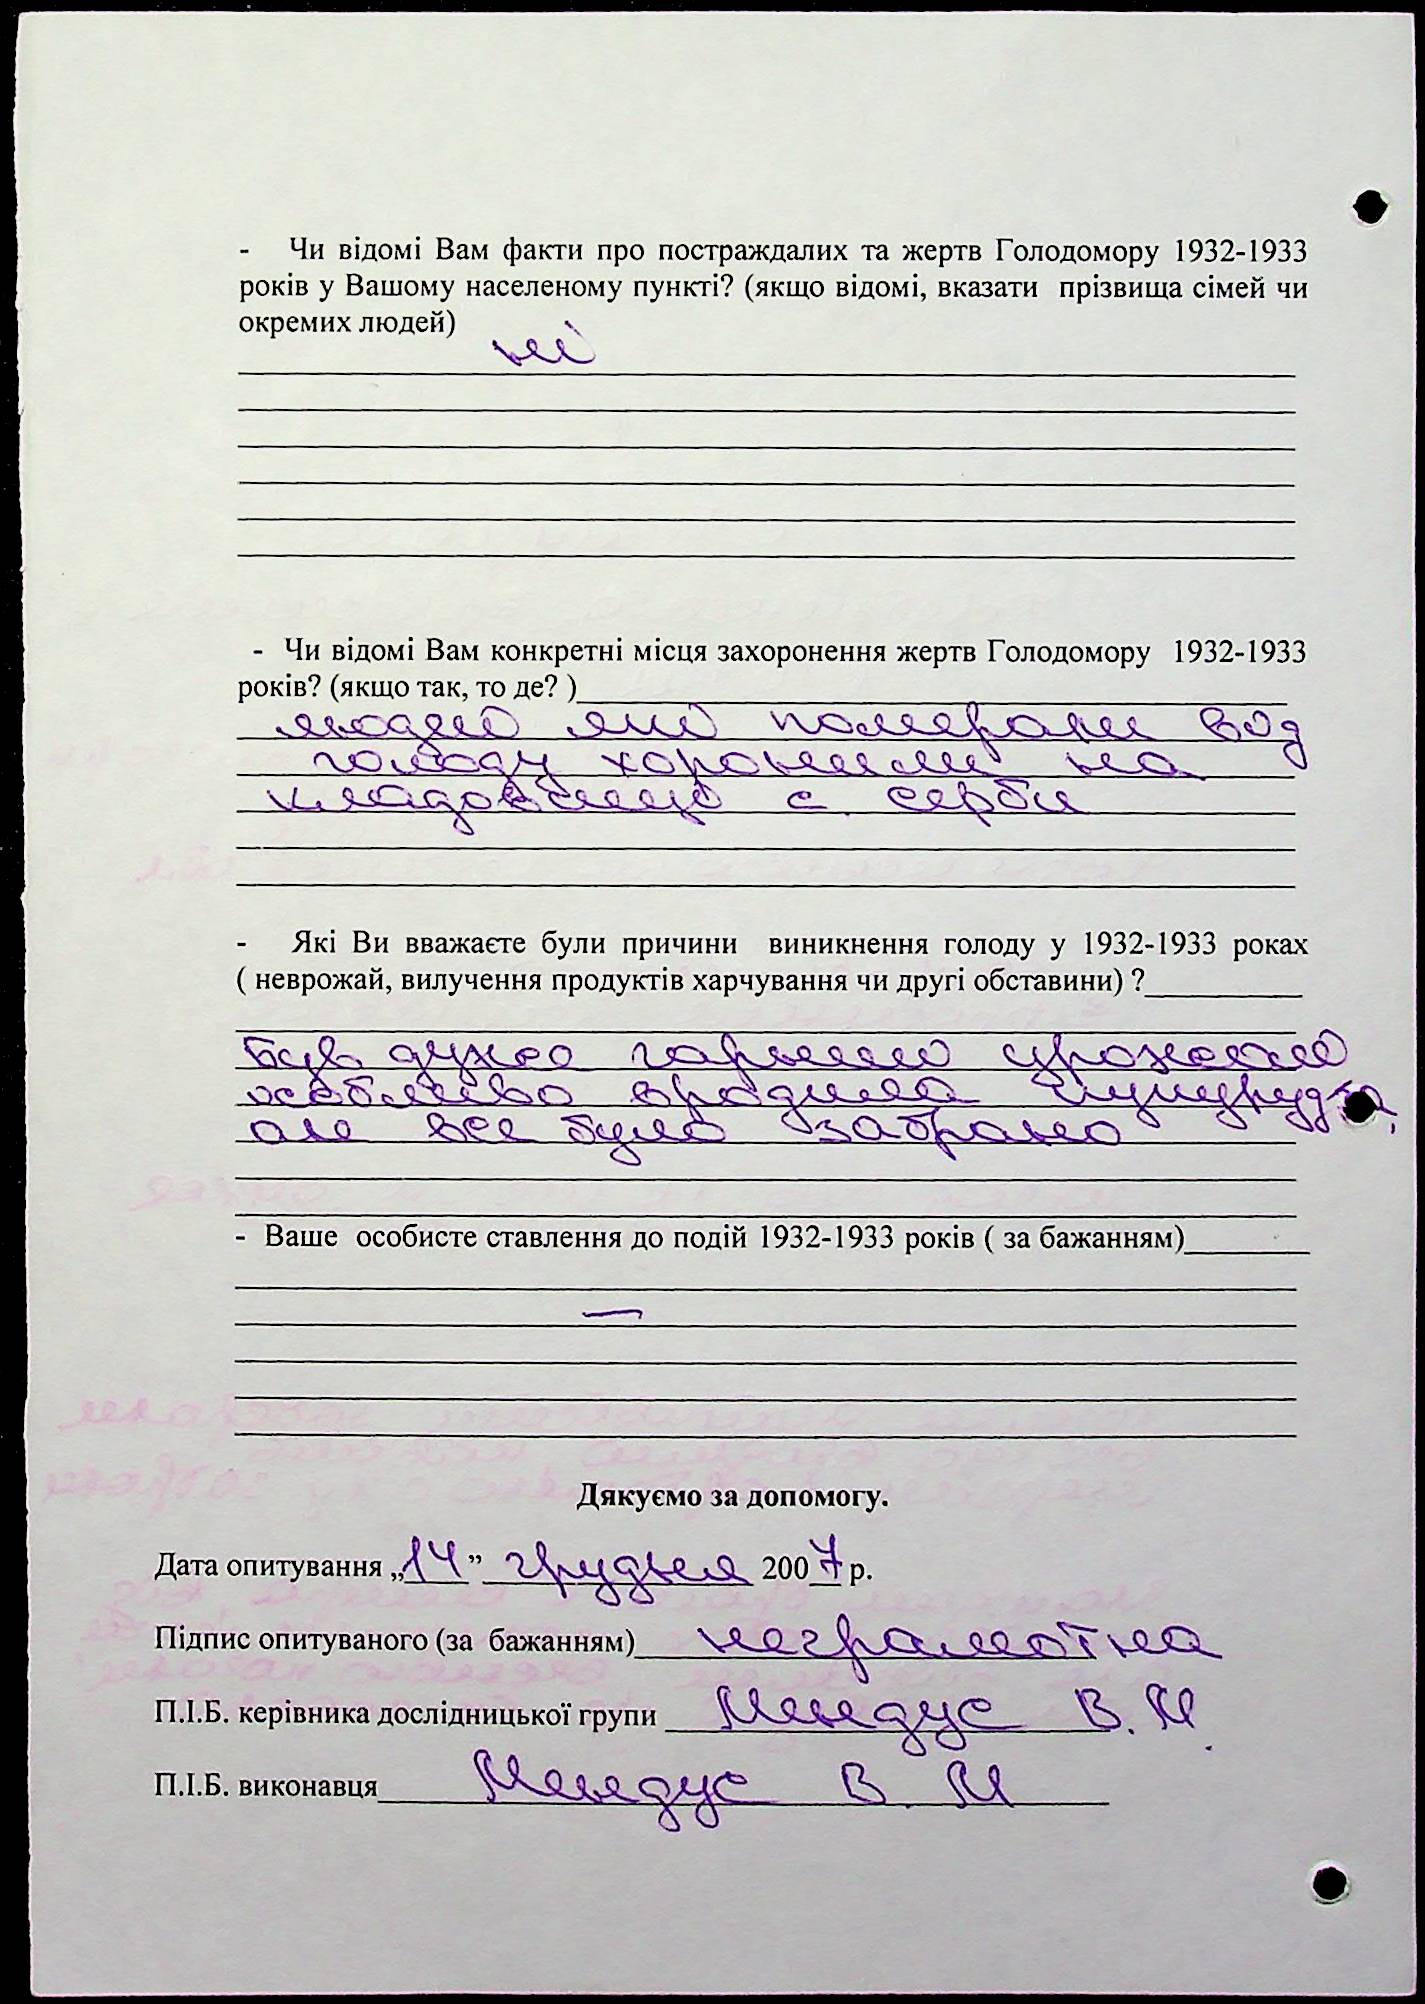 - Чи відомі Вам факти про постраждалих та жертв Голодомору 1932-1933
років у Вашому населеному пункті? (якщо відомі, вказати прізвища сімей чи
окремих людей)
ні
- Чи відомі Вам конкретні місця захоронення жертв Голодомору 1932-1933
років? (якщо так, то де? )
людей які померали від
голоду хоронили на
кладовищі с. серби
- Які Ви вважаєте були причини виникнення голоду у 1932-1933 роках
( неврожай, вилучення продуктів харчування чи другі обставини) ?
Був дуже гарний урожай
особливо вродила кукурудза,
але все було забрано
- Ваше особисте ставлення до подій 1932-1933 років ( за бажанням)
—
Дякуємо за допомогу.
Дата опитування „14” грудня 2007 р.
Підпис опитуваного (за бажанням) неграмотна
П.І.Б. керівника дослідницької групи Мендус В. М.
П.І.Б. виконавця Мендус В. М